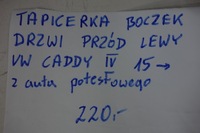 TAPICERKA BOCZEK
DRZWI PRZÓD LEWY
VW CADDY IV 15→
z auta potestowego
220,-